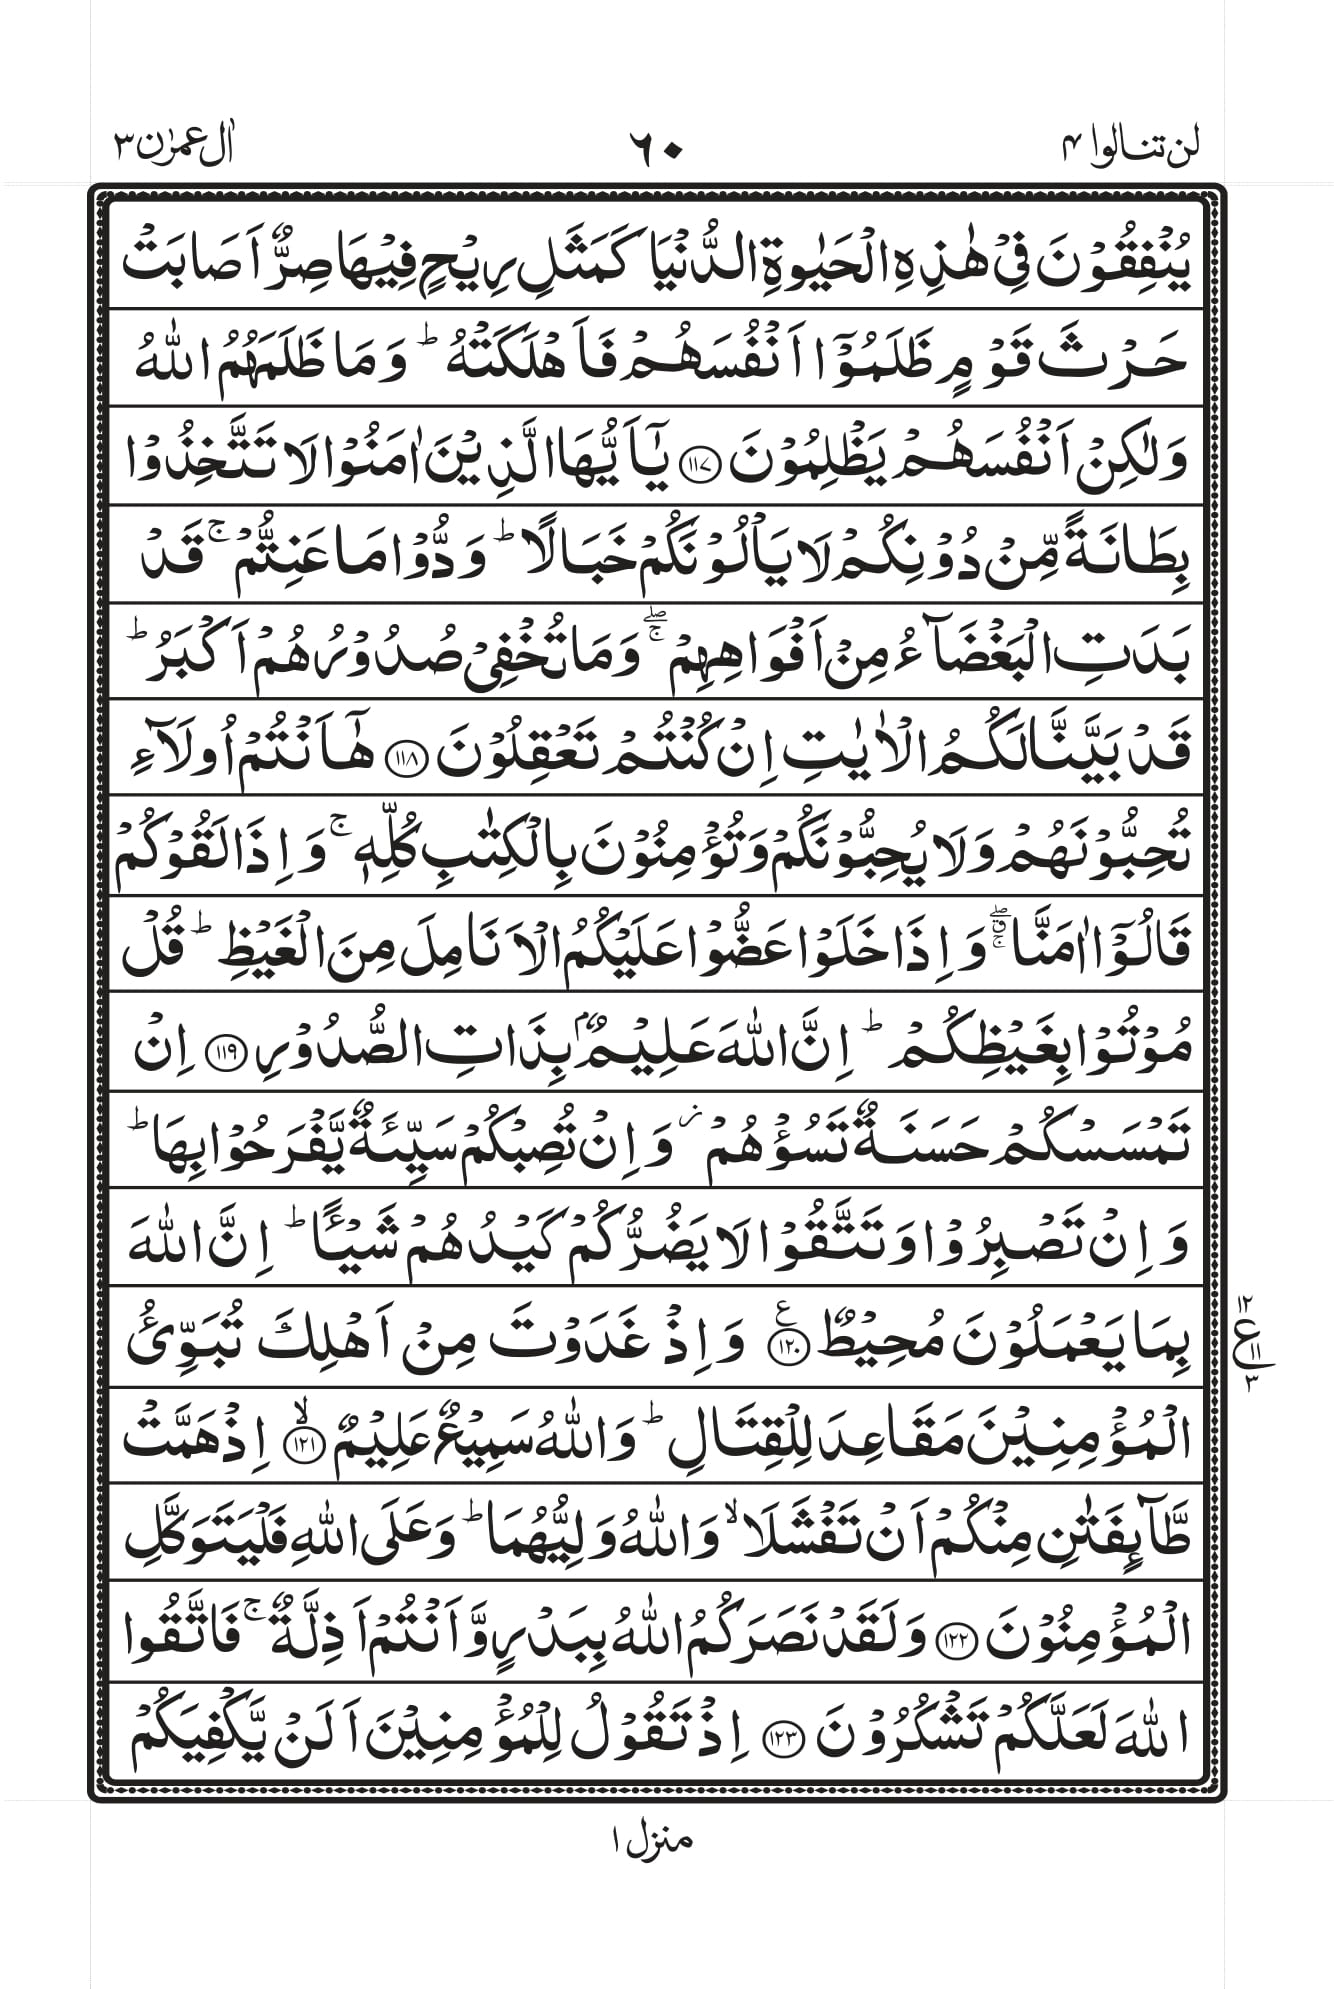 لن تنالوا ۴
۶۰
اٰل عمرٰن ۳
يُنْفِقُوْنَ فِيْ هٰذِهِ الْحَيٰوةِ الدُّنْيَا كَمَثَلِ رِيْحٍ فِيْهَا صِرٌّ اَصَابَتْ
حَرْثَ قَوْمٍ ظَلَمُوْۤا اَنْفُسَهُمْ فَاَهْلَكَتْهُ ؕ وَمَا ظَلَمَهُمُ اللّٰهُ
وَلٰكِنْ اَنْفُسَهُمْ يَظْلِمُوْنَ ﴿۱۱۷﴾ يٰۤاَيُّهَا الَّذِيْنَ اٰمَنُوْا لَا تَتَّخِذُوْا
بِطَانَةً مِّنْ دُوْنِكُمْ لَا يَاْلُوْنَكُمْ خَبَالًا ؕ وَدُّوْا مَا عَنِتُّمْ ۚ قَدْ
بَدَتِ الْبَغْضَآءُ مِنْ اَفْوَاهِهِمْ ۖۚ وَمَا تُخْفِيْ صُدُوْرُهُمْ اَكْبَرُ ؕ
قَدْ بَيَّنَّا لَكُمُ الْاٰيٰتِ اِنْ كُنْتُمْ تَعْقِلُوْنَ ﴿۱۱۸﴾ هٰۤاَنْتُمْ اُولَآءِ
تُحِبُّوْنَهُمْ وَلَا يُحِبُّوْنَكُمْ وَتُؤْمِنُوْنَ بِالْكِتٰبِ كُلِّهٖ ۚ وَاِذَا لَقُوْكُمْ
قَالُوْۤا اٰمَنَّا ۖۗۚ وَاِذَا خَلَوْا عَضُّوْا عَلَيْكُمُ الْاَنَامِلَ مِنَ الْغَيْظِ ؕ قُلْ
مُوْتُوْا بِغَيْظِكُمْ ؕ اِنَّ اللّٰهَ عَلِيْمٌۢ بِذَاتِ الصُّدُوْرِ ﴿۱۱۹﴾ اِنْ
تَمْسَسْكُمْ حَسَنَةٌ تَسُؤْهُمْ ؗ وَاِنْ تُصِبْكُمْ سَيِّئَةٌ يَّفْرَحُوْا بِهَا ؕ
وَاِنْ تَصْبِرُوْا وَتَتَّقُوْا لَا يَضُرُّكُمْ كَيْدُهُمْ شَيْـًٔا ؕ اِنَّ اللّٰهَ
بِمَا يَعْمَلُوْنَ مُحِيْطٌ ﴿۱۲۰﴾ ع وَاِذْ غَدَوْتَ مِنْ اَهْلِكَ تُبَوِّئُ
۱۲ ع ۱۱ ۳
الْمُؤْمِنِيْنَ مَقَاعِدَ لِلْقِتَالِ ؕ وَاللّٰهُ سَمِيْعٌ عَلِيْمٌ ﴿۱۲۱﴾ ۙ اِذْ هَمَّتْ
طَّآئِفَتٰنِ مِنْكُمْ اَنْ تَفْشَلَا ۙ وَاللّٰهُ وَلِيُّهُمَا ؕ وَعَلَى اللّٰهِ فَلْيَتَوَكَّلِ
الْمُؤْمِنُوْنَ ﴿۱۲۲﴾ وَلَقَدْ نَصَرَكُمُ اللّٰهُ بِبَدْرٍ وَّاَنْتُمْ اَذِلَّةٌ ۚ فَاتَّقُوا
اللّٰهَ لَعَلَّكُمْ تَشْكُرُوْنَ ﴿۱۲۳﴾ اِذْ تَقُوْلُ لِلْمُؤْمِنِيْنَ اَلَنْ يَّكْفِيَكُمْ
منزل ۱